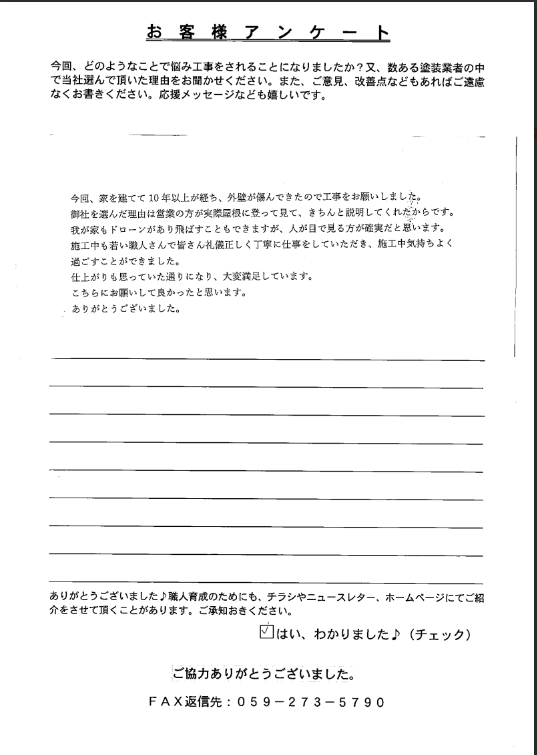 お客様アンケート
今回、どのようなことで悩み工事をされることになりましたか？又、数ある塗装業者の中
で当社選んで頂いた理由をお聞かせください。また、ご意見、改善点などもあればご遠慮
なくお書きください。応援メッセージなども嬉しいです。
今回、家を建てて10年以上が経ち、外壁が傷んできたので工事をお願いしました。
御社を選んだ理由は営業の方が実際屋根に登って見て、きちんと説明してくれたからです。
我が家もドローンがあり飛ばすこともできますが、人が目で見る方が確実だと思います。
施工中も若い職人さんで皆さん礼儀正しく丁寧に仕事をしていただき、施工中気持ちよく
過ごすことができました。
仕上がりも思っていた通りになり、大変満足しています。
こちらにお願いして良かったと思います。
ありがとうございました。
ありがとうございました♪職人育成のためにも、チラシやニュースレター、ホームページにてご紹
介をさせて頂くことがあります。ご承知おきください。
☑はい、わかりました♪（チェック）
ご協力ありがとうございました。
ＦＡＸ返信先：０５９－２７３－５７９０